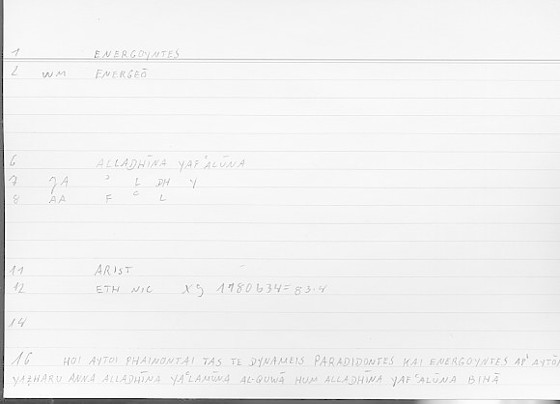 1 ENERGOYNTES
2 WM ENERGEŌ
6 ALLADHĪNA YAFʿALŪNA
7 ʾ L DH Y
8 AA F ʿ L
11 ARIST
12 ETH NIC 1180b34=83.4
14
16 HOI AYTOI PHAINONTAI TAS TE DYNAMEIS PARADIDONTES KAI ENERGOYNTES AP' AYTŌN
YAẒHARU ANNA ALLADHĪNA YAʿLAMŪNA AL-QUWĀ HUM ALLADHĪNA YAFʿALŪNA BIHĀ